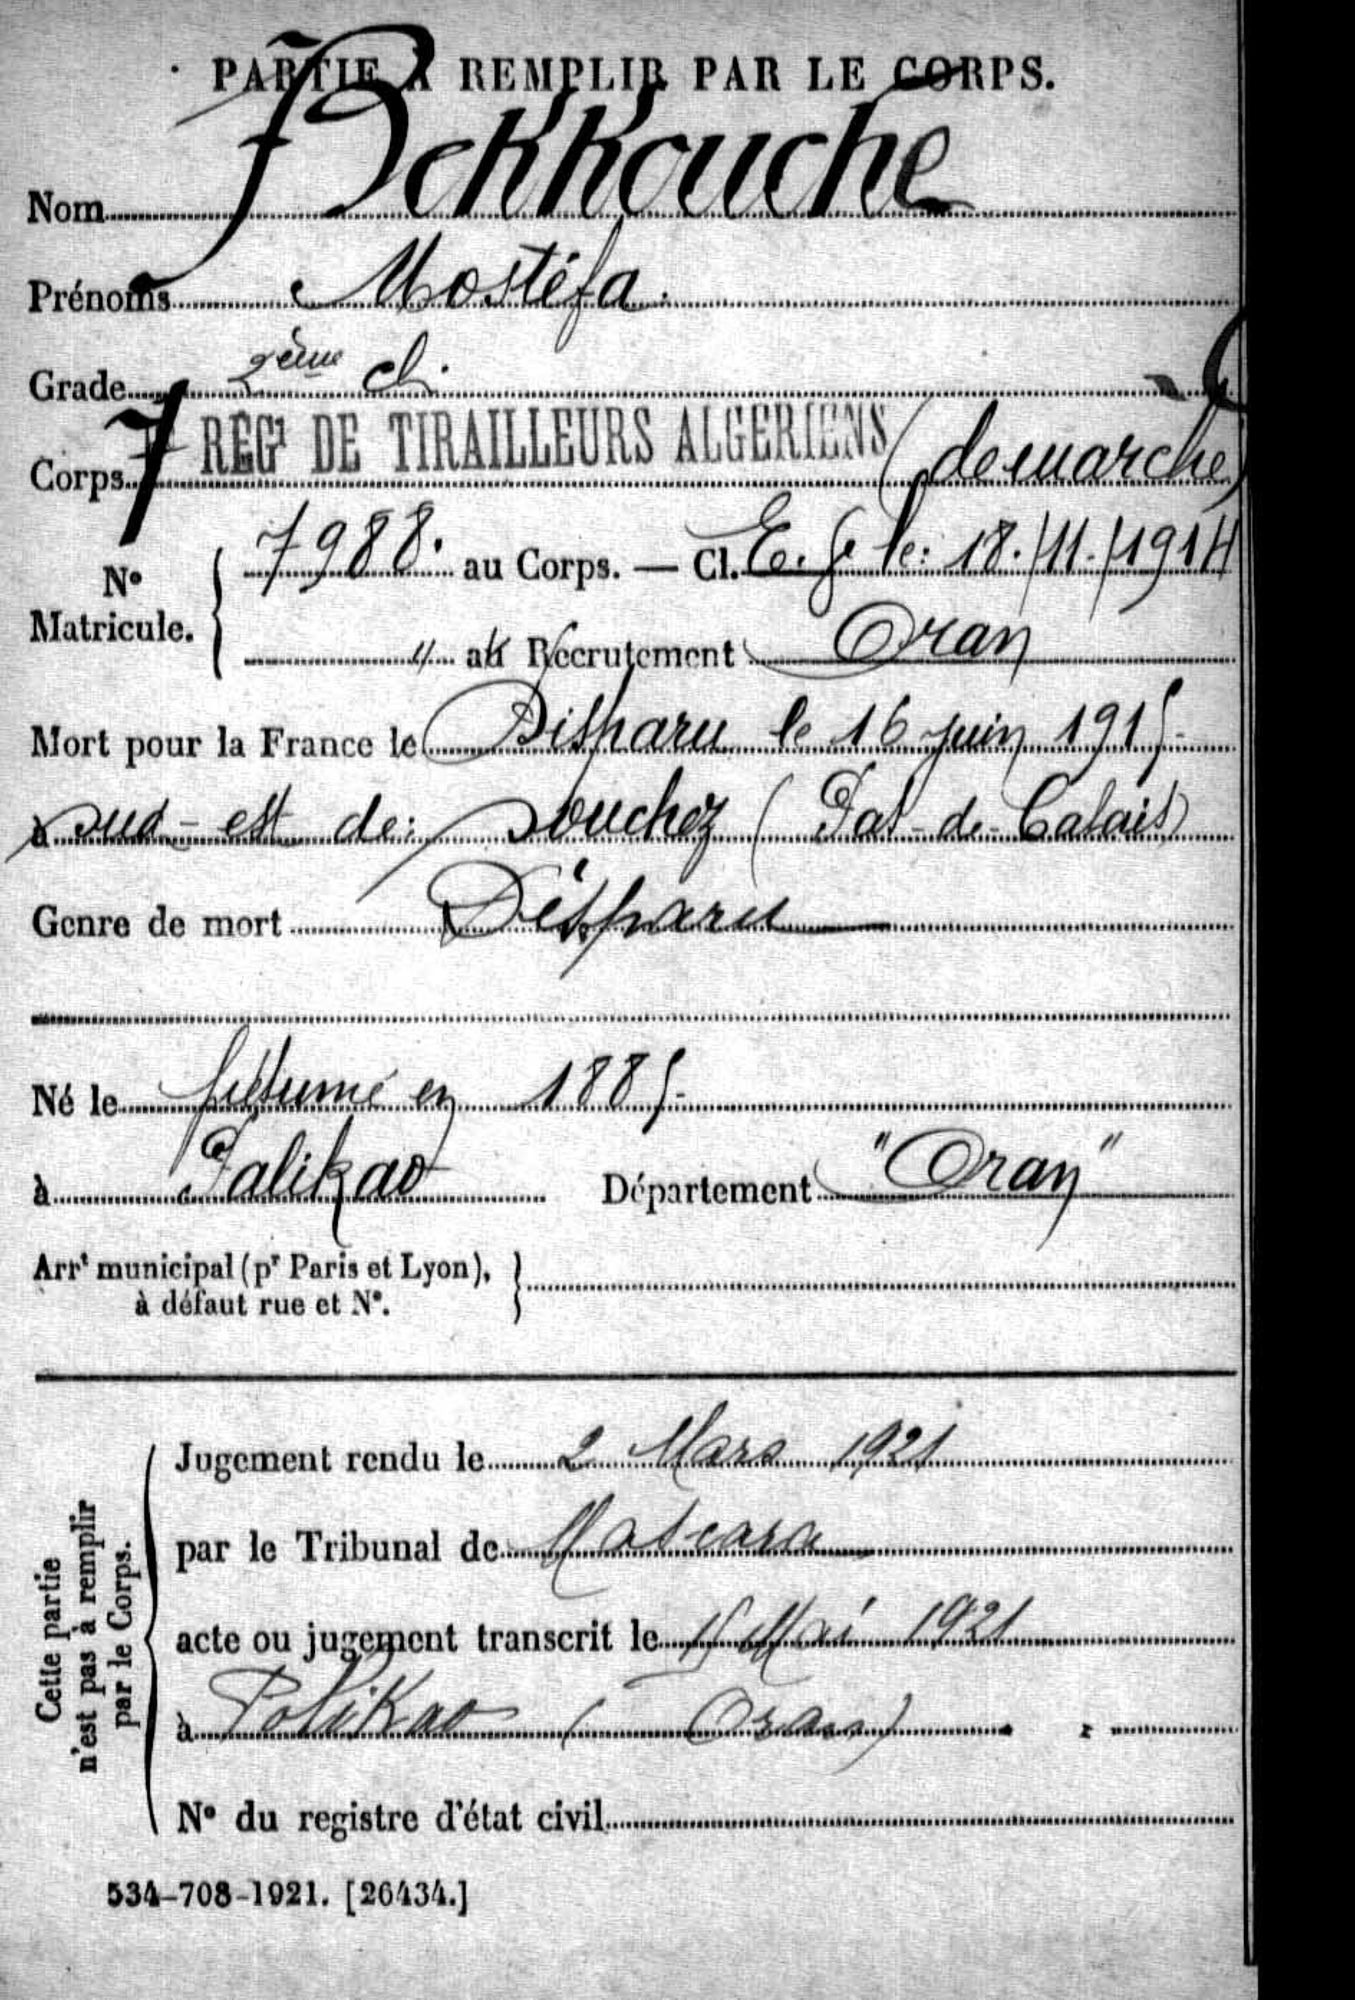 PARTIE À REMPLIR PAR LE CORPS.
Nom Bekkouche
Prénoms Mostéfa.
Grade 2ème cl.
Corps 7 REGt DE TIRAILLEURS ALGERIENS (de marche)
No Matricule. { 7988. au Corps. — Cl. E. le: 18./11./1914
" au Recrutement Oran
Mort pour la France le Disparu le 16 juin 1915-
à sud-est de: Souchez (Pas-de-Calais)
Genre de mort Disparu
Né le présumé en 1885-
à Palikao Département "Oran"
Arrt municipal (pr Paris et Lyon), }
à défaut rue et No.
Cette partie
n'est pas à remplir
par le Corps.
Jugement rendu le 2 Mars 1921
par le Tribunal de Mascara
acte ou jugement transcrit le Mai 1921
à Palikao (Oran)
No du registre d'état civil
534-708-1921. [26434.]